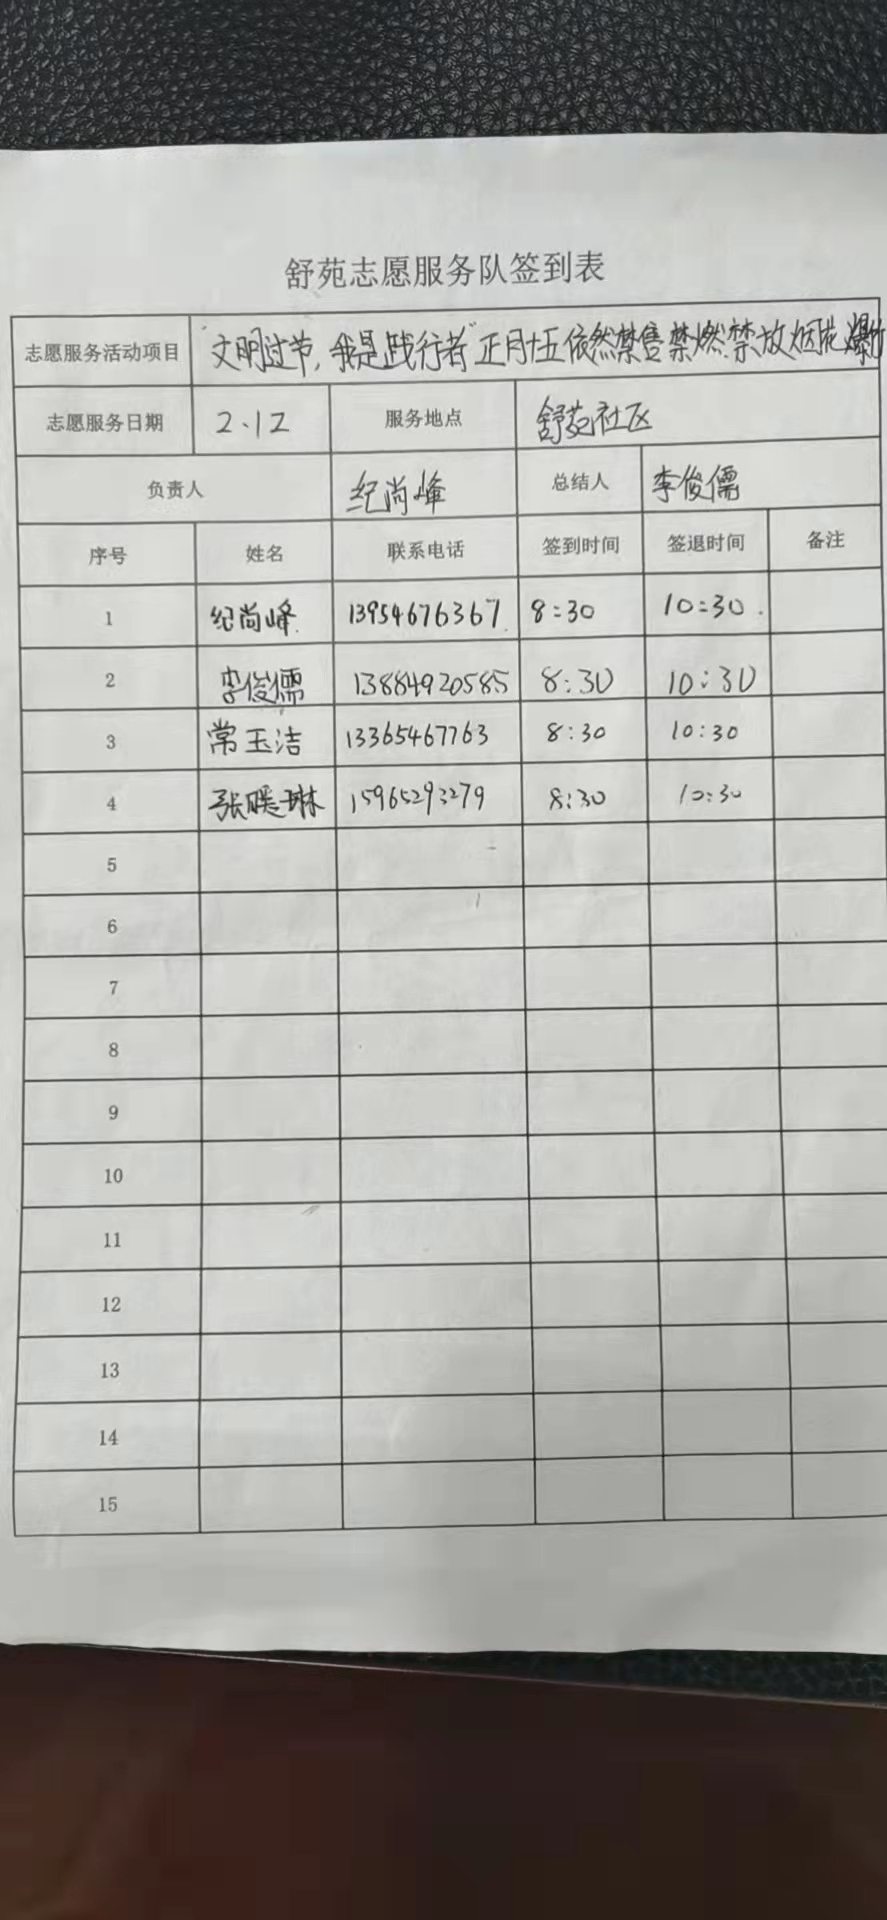 舒苑志愿服务队签到表
志愿服务活动项目 "文明过节,我是践行者"正月十五依然禁售禁燃禁放烟花爆竹
志愿服务日期 2.12 服务地点 舒苑社区
负责人 纪尚峰 总结人 李俊儒
序号 姓名 联系电话 签到时间 签退时间 备注
1 纪尚峰 13954676367 8:30 10:30
2 李俊儒 13884920585 8:30 10:30
3 常玉洁 13365467763 8:30 10:30
4 张暖琳 15965293279 8:30 10:30
5
6
7
8
9
10
11
12
13
14
15